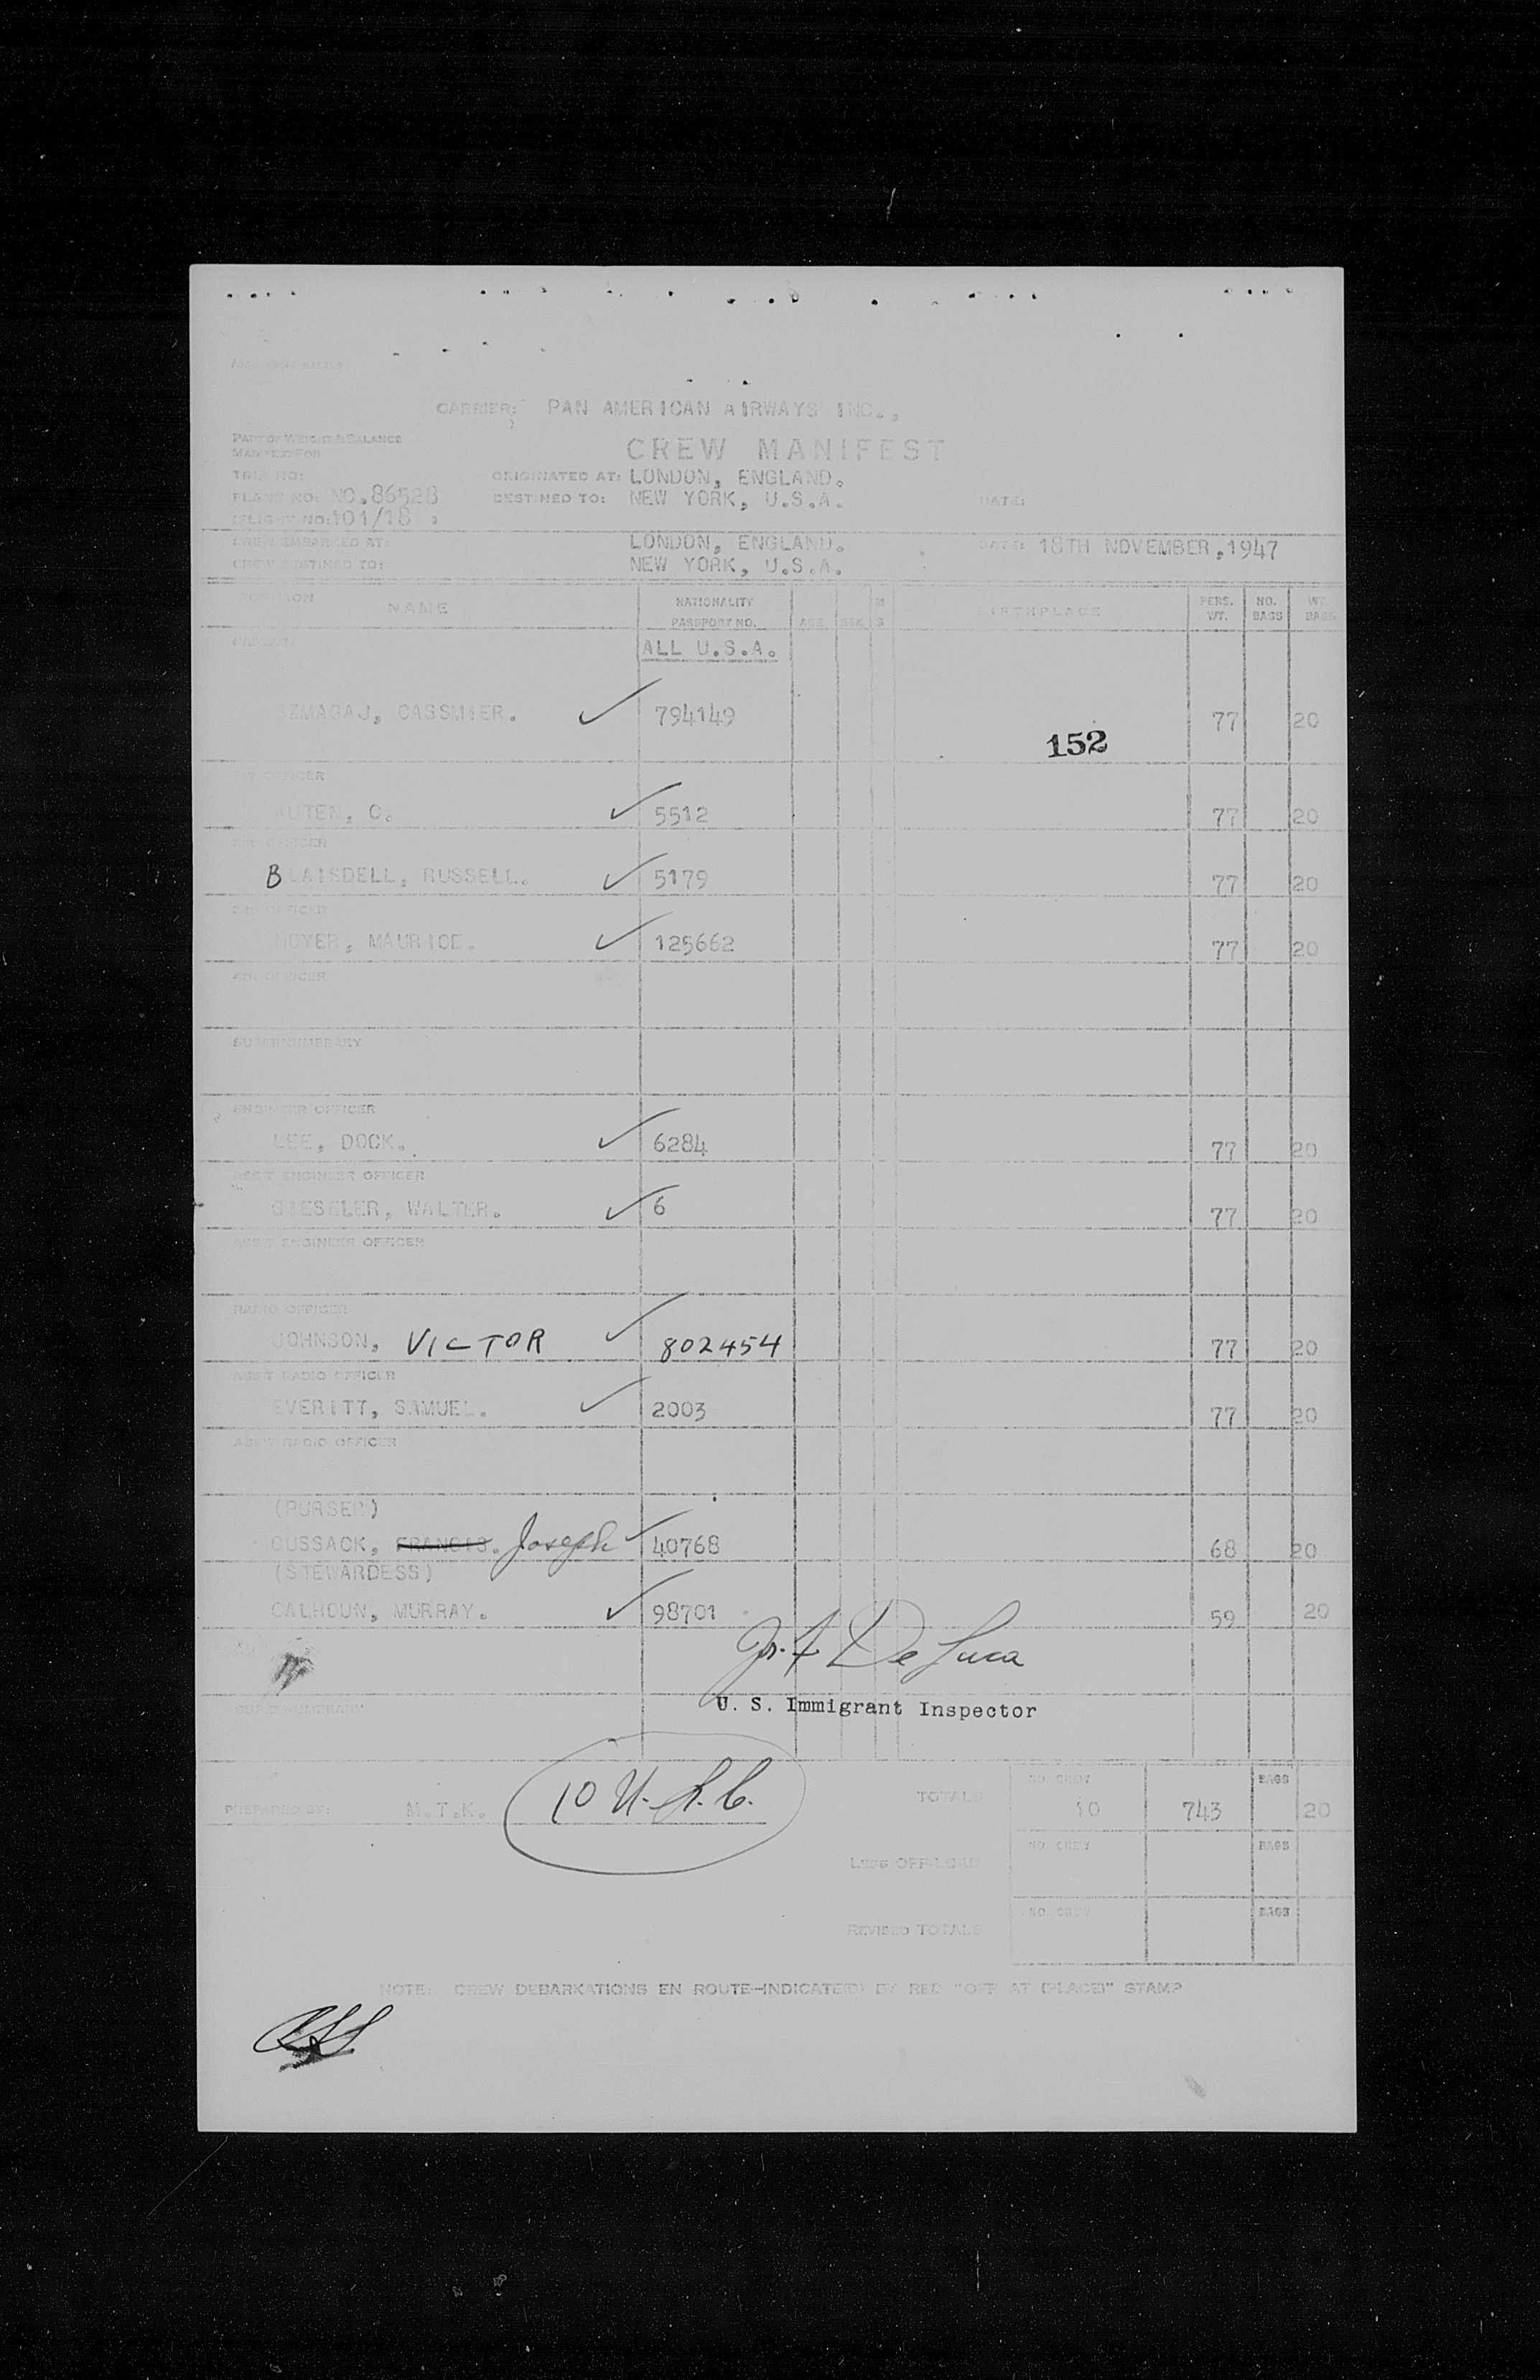 CARRIER: PAN AMERICAN AIRWAYS INC.,
PART OF WEIGHT & BALANCE
MANIFEST FOR
CREW MANIFEST
TRIP NO: ORIGINATED AT: LONDON, ENGLAND.
PLANE NO: NO.86528 DESTINED TO: NEW YORK, U.S.A. DATE:
(FLIGHT NO: 101/18 )
CREW EMBARKED AT: LONDON, ENGLAND. DATE: 18TH NOVEMBER,1947
CREW DESTINED TO: NEW YORK, U.S.A.
POSITION NAME NATIONALITY PASSPORT NO. AGE SEX M S BIRTHPLACE PERS. WT. NO. BAGS WT. BAGS
CAPTAIN ALL U.S.A.
SZMAGAJ, CASSMIER. ✓ 794149 77 20
152
1ST OFFICER
AUTEN, C. ✓ 5512 77 20
2ND OFFICER
BLAISDELL, RUSSELL. ✓ 5179 77 20
3RD OFFICER
MOYER, MAURICE. ✓ 125662 77 20
4TH OFFICER
SUPERNUMERARY
ENGINEER OFFICER
LEE, DOCK. ✓ 6284 77 20
ASS'T ENGINEER OFFICER
GIESELER, WALTER. ✓ 6 77 20
ASS'T ENGINEER OFFICER
RADIO OFFICER
JOHNSON, VICTOR ✓ 802454 77 20
ASS'T RADIO OFFICER
EVERITT, SAMUEL. ✓ 2003 77 20
ASS'T RADIO OFFICER
(PURSER)
CUSSACK, FRANCIS. Joseph ✓ 40768 68 20
(STEWARDESS)
CALHOUN, MURRAY. ✓ 98701 59 20
De Luca
U. S. Immigrant Inspector
SUPERNUMERARY
PREPARED BY: M.T.K. 10 U.S.C. TOTALS NO. CREW 10 743 BAGS 20
LESS OFF-LOAD NO. CREW BAGS
REVISED TOTALS NO. CREW BAGS
NOTE: CREW DEBARKATIONS EN ROUTE—INDICATE(D) BY RED "OFF AT (PLACE)" STAMP